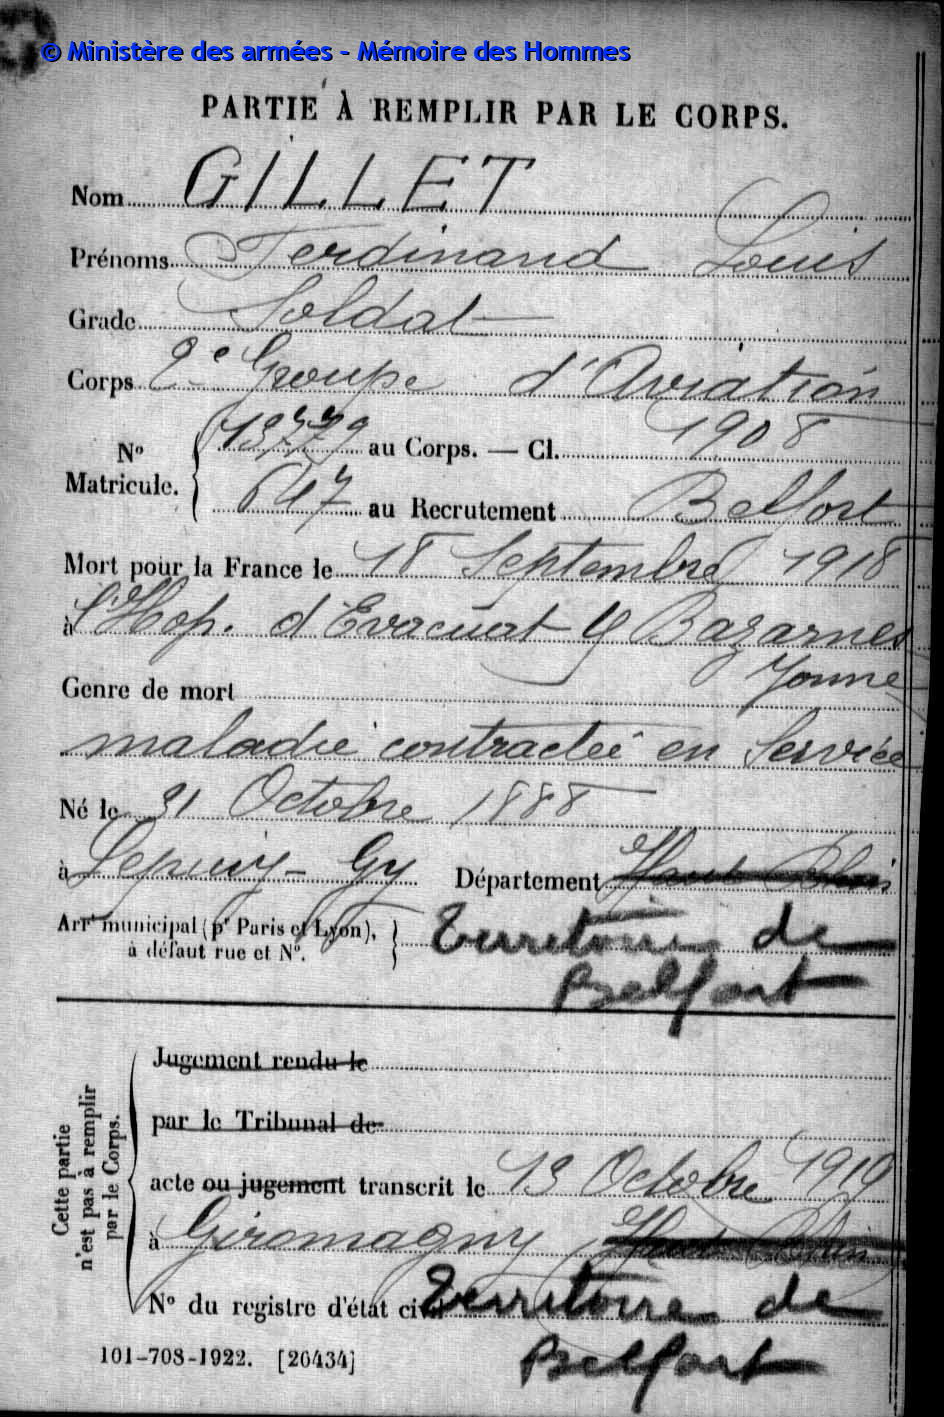 © Ministère des armées - Mémoire des Hommes
PARTIE À REMPLIR PAR LE CORPS.
Nom GILLET
Prénoms Ferdinand Louis
Grade Soldat
Corps 2e Groupe d'Aviation
No Matricule. 13779 au Corps. — Cl. 1908
647 au Recrutement Belfort
Mort pour la France le 18 Septembre 1918
à l'Hop. d'Evacuat Bazarnes
Yonne
Genre de mort
maladie contractée en Service
Né le 31 Octobre 1888
à Lepuix-Gy Département Haut Rhin
Arrt municipal (pr Paris et Lyon), à défaut rue et No. Territoire de
Belfort
Cette partie n'est pas à remplir par le Corps.
Jugement rendu le
par le Tribunal de
acte ou jugement transcrit le 13 Octobre 1919
à Giromagny Haut Rhin
No du registre d'état civil Territoire de
Belfort
101-708-1922. [26434]